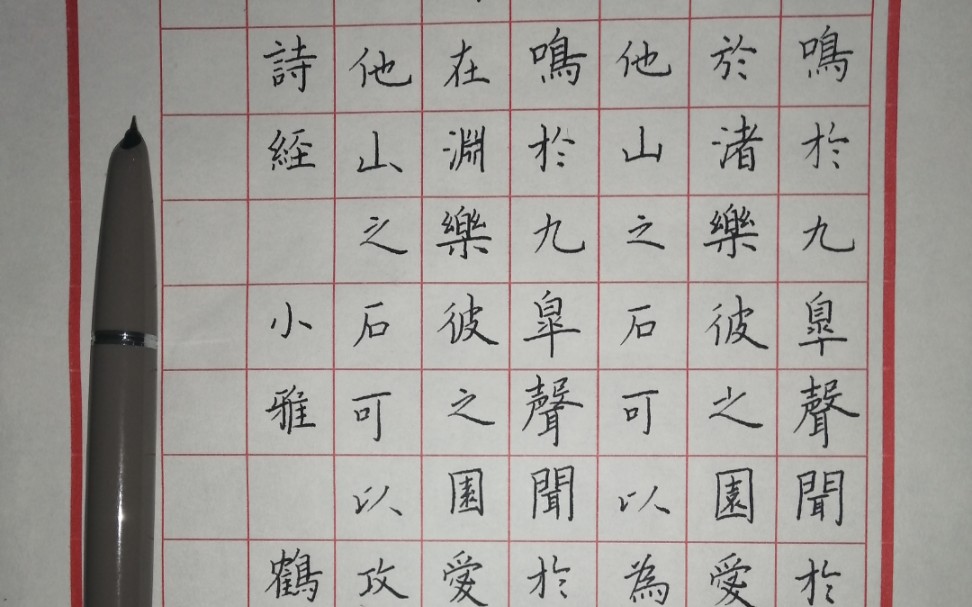 鳴於九皐聲聞於
於渚樂彼之園愛
他山之石可以為
鳴於九皐聲聞於
在淵樂彼之園愛
他山之石可以攻
詩經 小雅 鶴